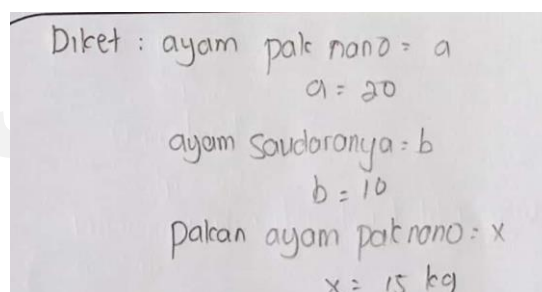 Diket : ayam pak nano = a
a = 20
ayam saudaranya = b
b = 10
Pakan ayam pak nano = x
x = 15 kg